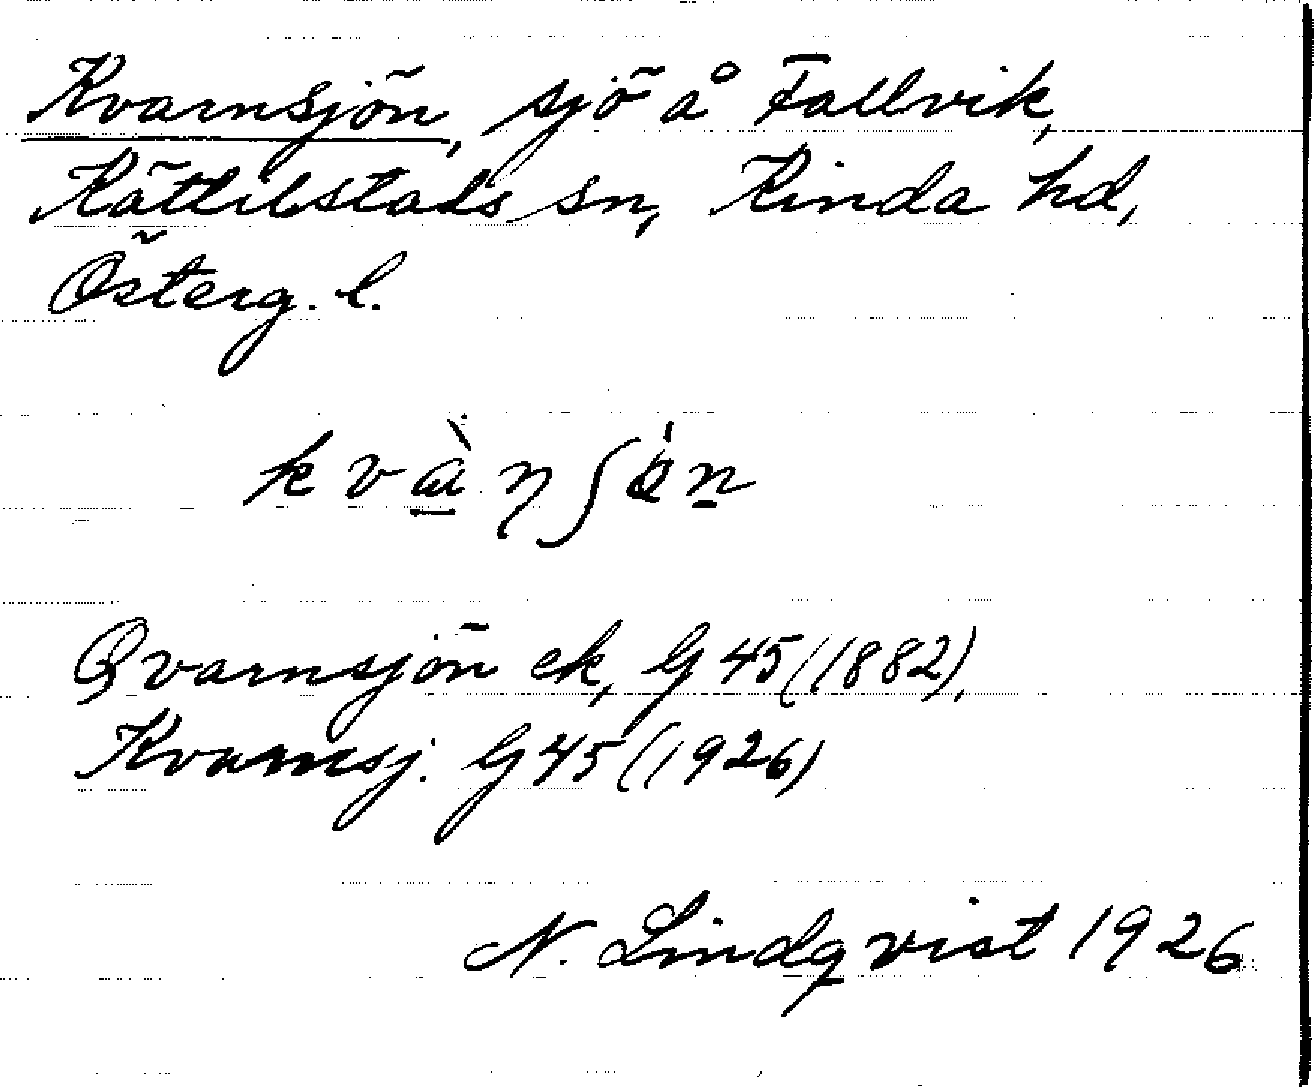 Kvarnsjön, sjö å Fallvik,
Kättilstads sn, Kinda hd,
Österg. l.
Qvarnsjön ek, G 45 (1882),
Kvarnsj. G 45 (1926)
N. Lindqvist 1926